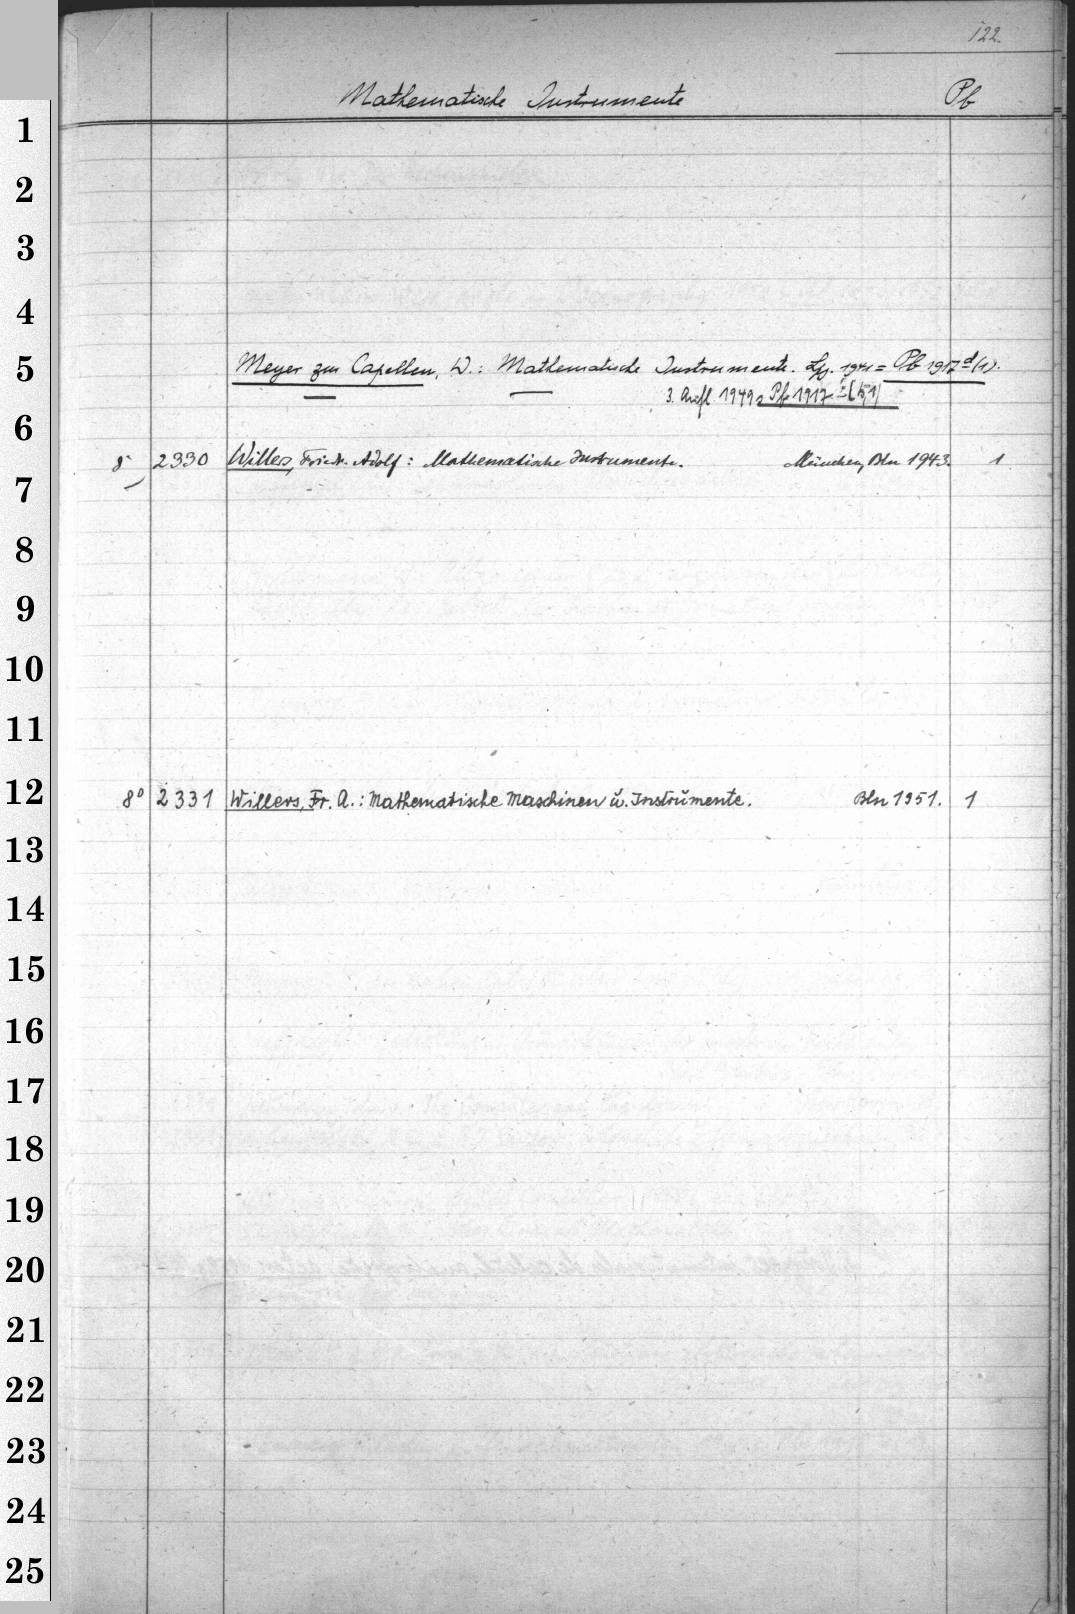 122.
Mathematische Instrumente Pb
1
2
3
4
5 Meyer zur Capellen, W.: Mathematische Instrumente. Lpz. 1941 = Pb 1917 d (1).
3. Aufl 1949 = Pb 1917
6
8° 2330 Willers, Friedr. Adolf: Mathematische Instrumente. München, Bln 1943. 1
7
8
9
10
11
12 8° 2331 Willers, Fr. A.: Mathematische Maschinen u. Instrumente. Bln 1951. 1
13
14
15
16
17
18
19
20
21
22
23
24
25